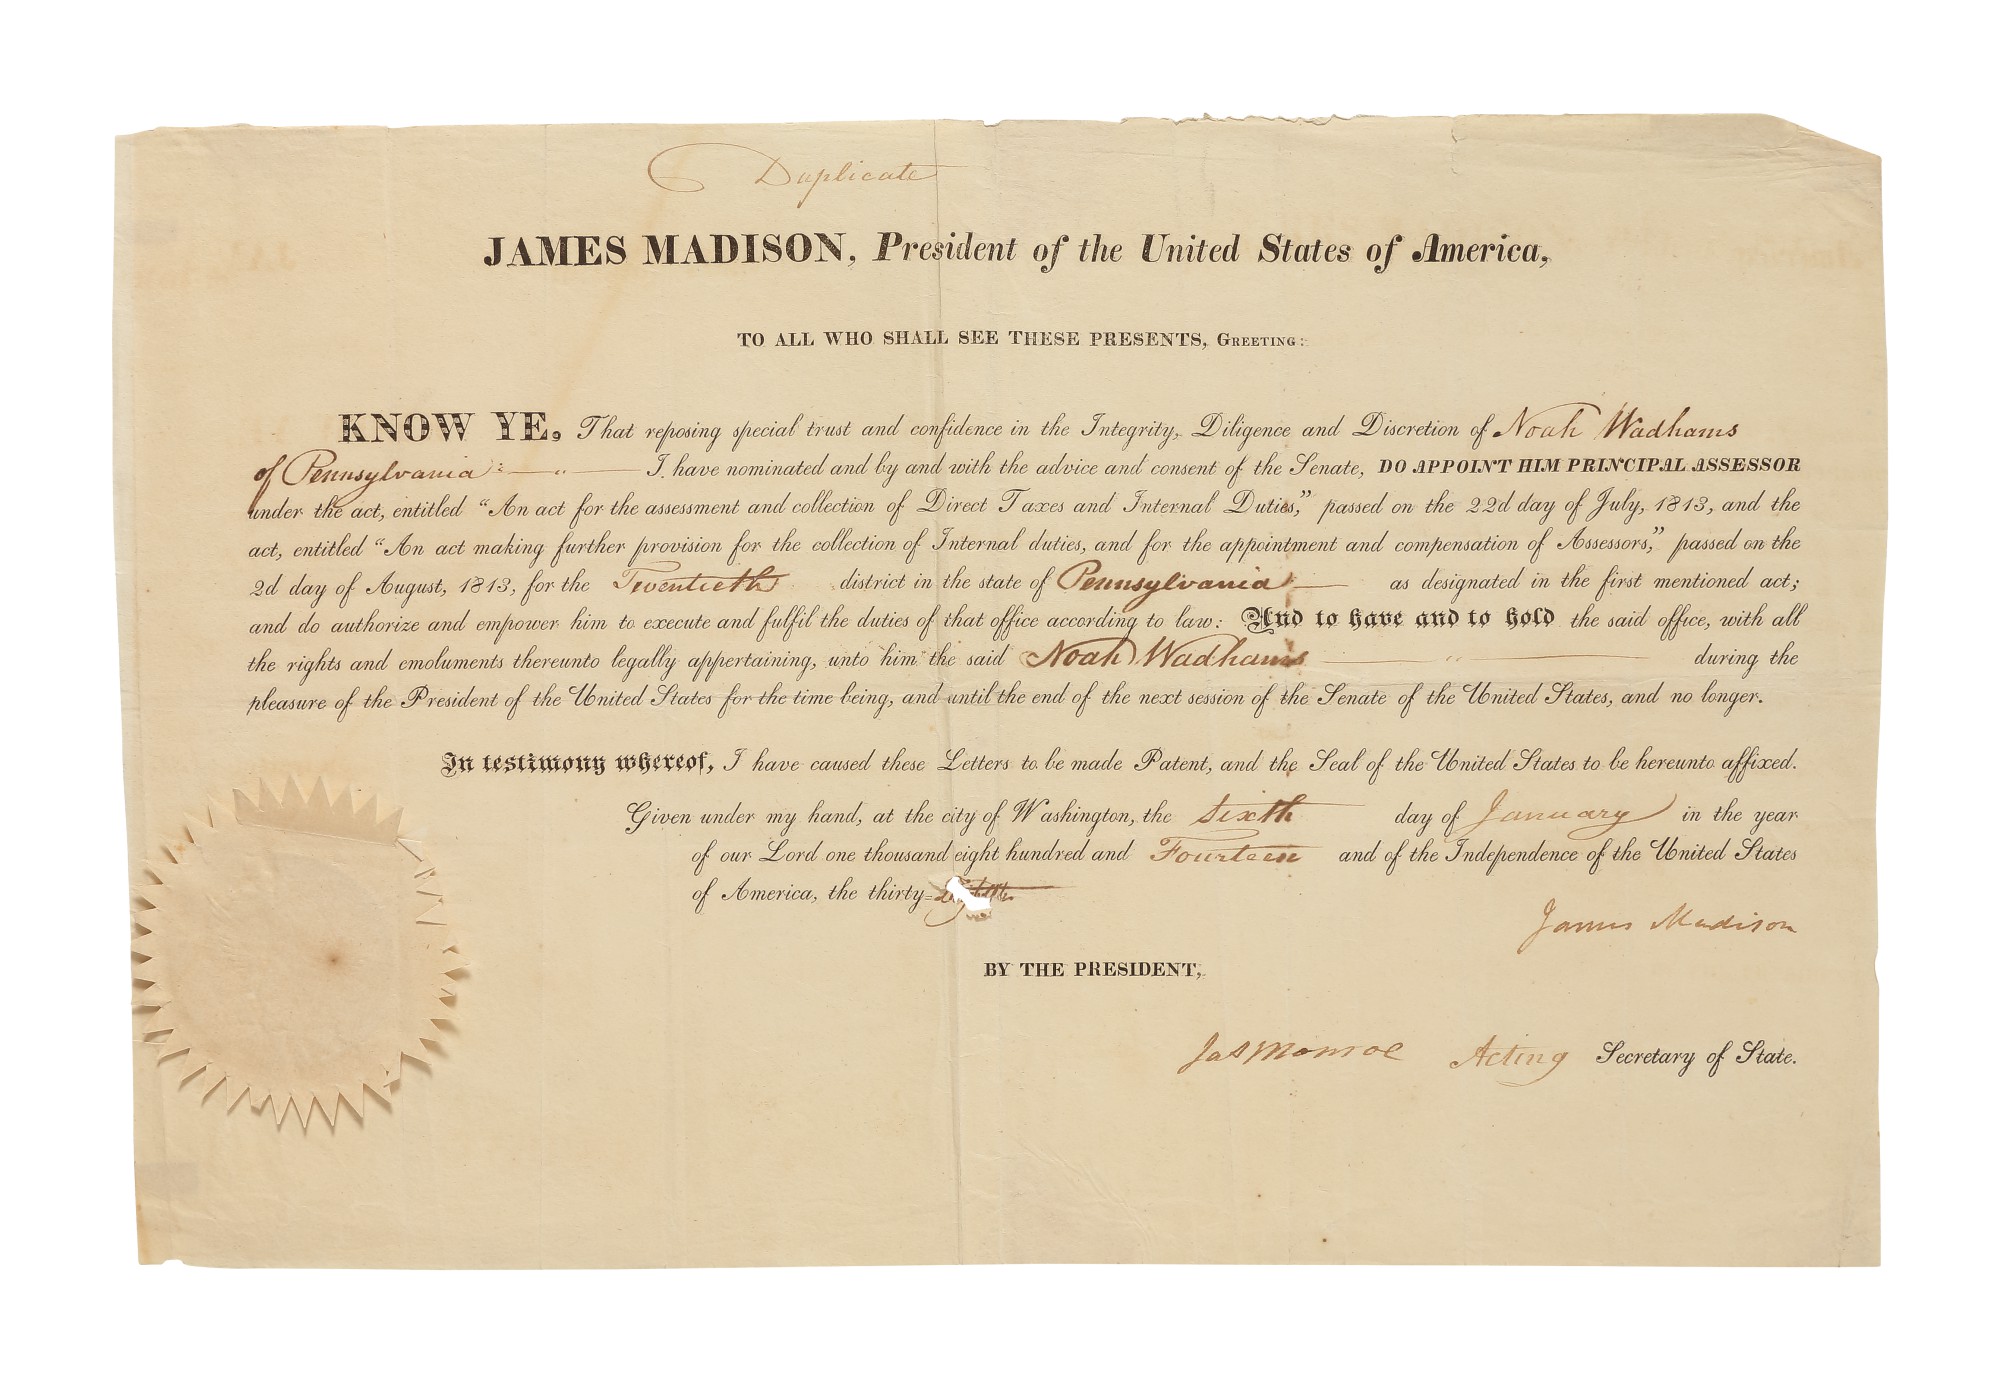 Duplicate
JAMES MADISON, President of the United States of America,
TO ALL WHO SHALL SEE THESE PRESENTS, GREETING:
KNOW YE, That reposing special trust and confidence in the Integrity, Diligence and Discretion of Noah Wadhams
of Pennsylvania:— " — I have nominated and by and with the advice and consent of the Senate, DO APPOINT HIM PRINCIPAL ASSESSOR
under the act, entitled “An act for the assessment and collection of Direct Taxes and Internal Duties,” passed on the 22d day of July, 1813, and the
act, entitled “An act making further provision for the collection of Internal duties, and for the appointment and compensation of Assessors,” passed on the
2d day of August, 1813, for the Twentieth district in the state of Pennsylvania — as designated in the first mentioned act;
and do authorize and empower him to execute and fulfil the duties of that office according to law: And to have and to hold the said office, with all
the rights and emoluments thereunto legally appertaining, unto him the said Noah Wadhams — " — during the
pleasure of the President of the United States for the time being, and until the end of the next session of the Senate of the United States, and no longer.
In testimony whereof, I have caused these Letters to be made Patent, and the Seal of the United States to be hereunto affixed.
Given under my hand, at the city of Washington, the Sixth day of January in the year
of our Lord one thousand eight hundred and Fourteen and of the Independence of the United States
of America, the thirty=eighth
James Madison
BY THE PRESIDENT,
Jas Monroe Acting Secretary of State.